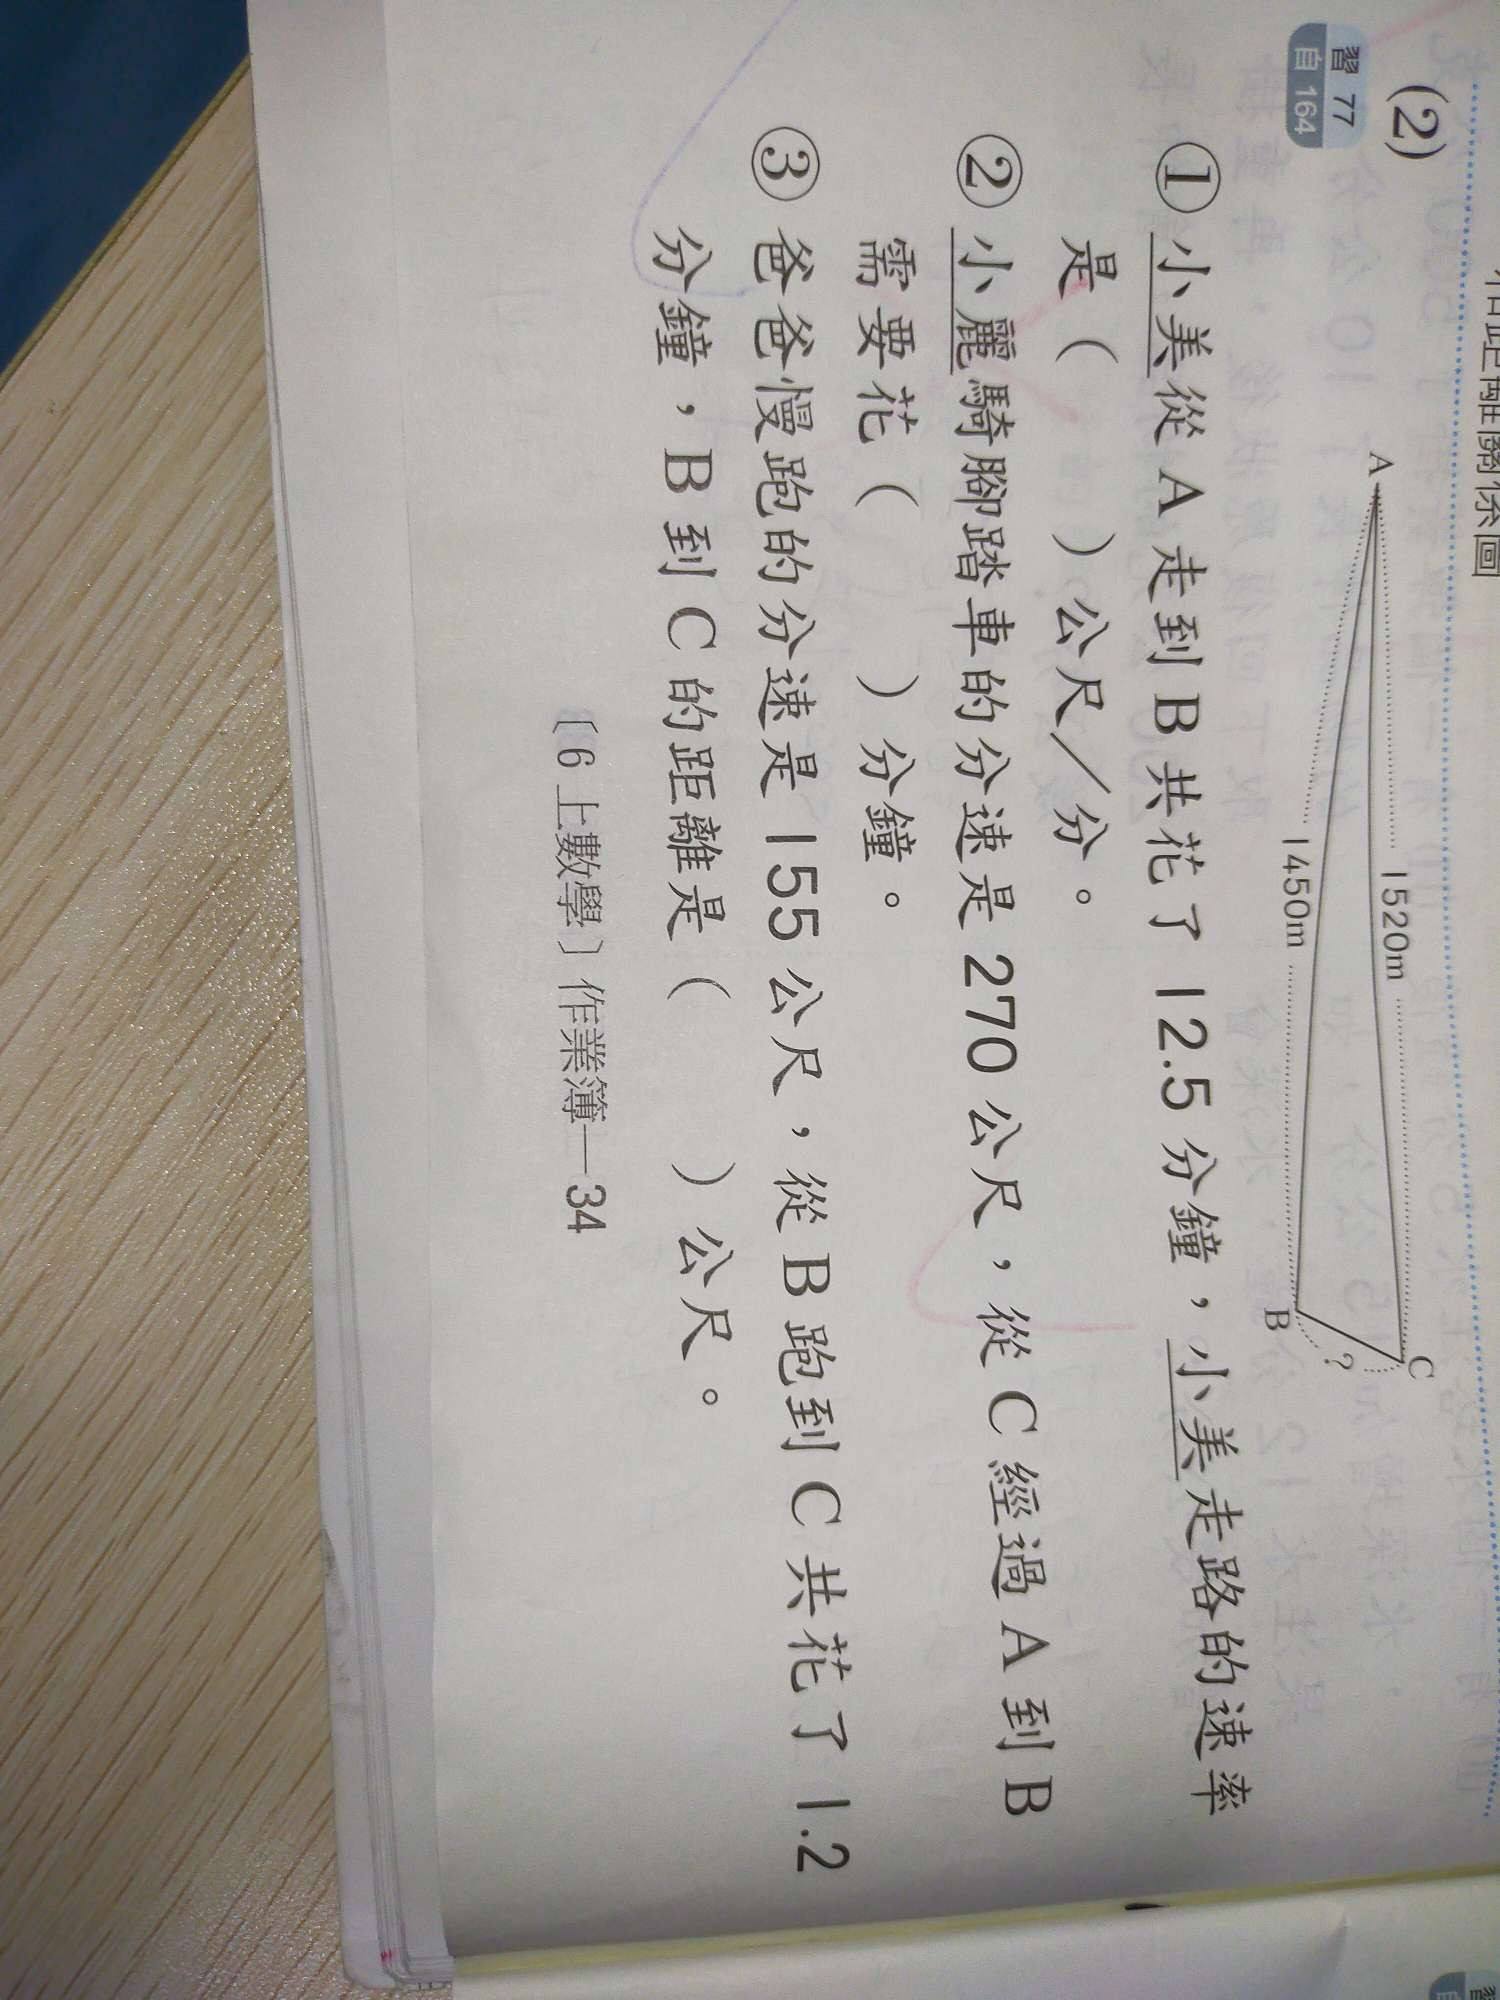 和距離關係圖
(2)
習 77
自 164
A
1520m
1450m
B
C
?
① 小美從 A 走到 B 共花了 12.5 分鐘，小美走路的速率
是（　　　）公尺／分。
② 小麗騎腳踏車的分速是 270 公尺，從 C 經過 A 到 B
需要花（　　　）分鐘。
③ 爸爸慢跑的分速是 155 公尺，從 B 跑到 C 共花了 1.2
分鐘，B 到 C 的距離是（　　　）公尺。
〔6 上數學〕作業簿—34